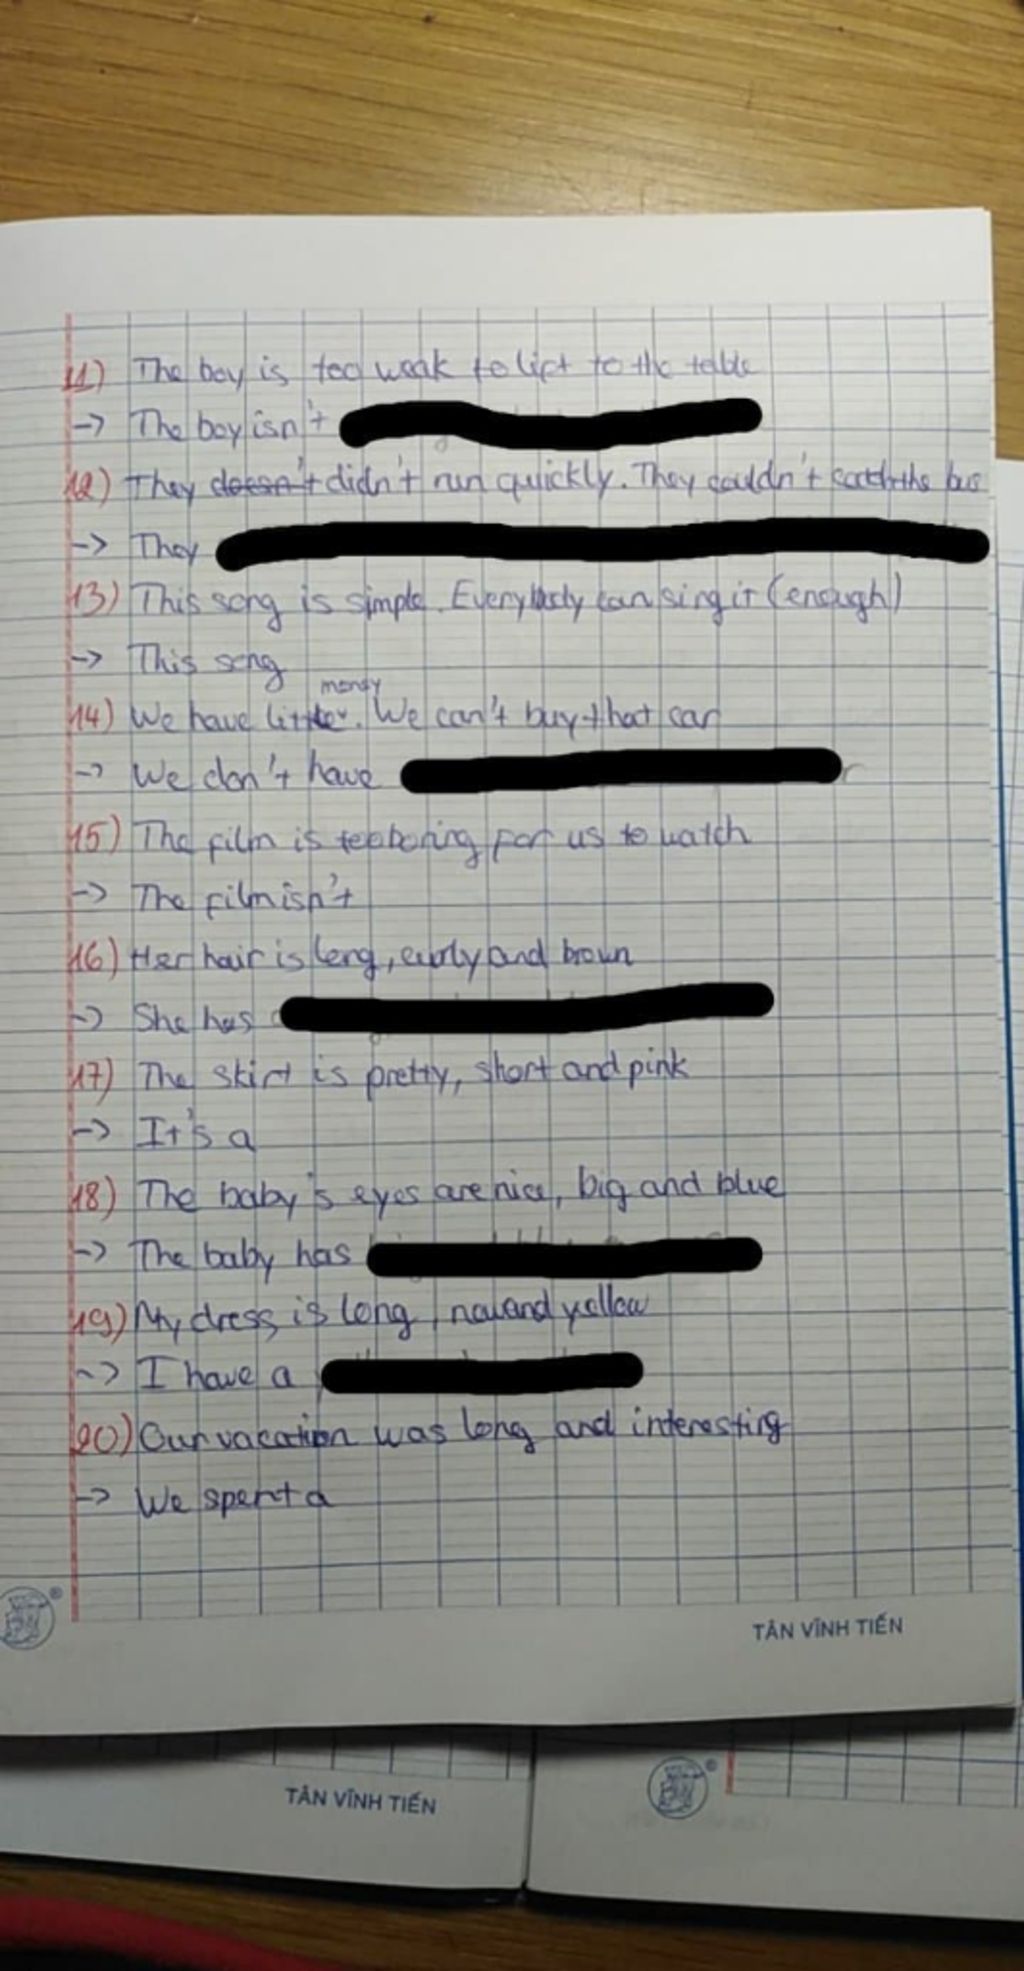 11) The boy is too weak to lift to the table
-> The boy isn't
12) They doesn't didn't run quickly. They couldn't catch the bus
-> They
13) This song is simple. Everybody can sing it (enough)
-> This song
money
14) We have little. We can't buy that car
-> We don't have
15) The film is too boring for us to watch
-> The film isn't
16) Her hair is long, curly and brown
-> She has
17) The skirt is pretty, short and pink
-> It's a
18) The baby's eyes are nice, big and blue
-> The baby has
19) My dress is long, new and yellow
-> I have a
20) Our vacation was long and interesting
-> We spent a
TÂN VĨNH TIẾN
TÂN VĨNH TIẾN